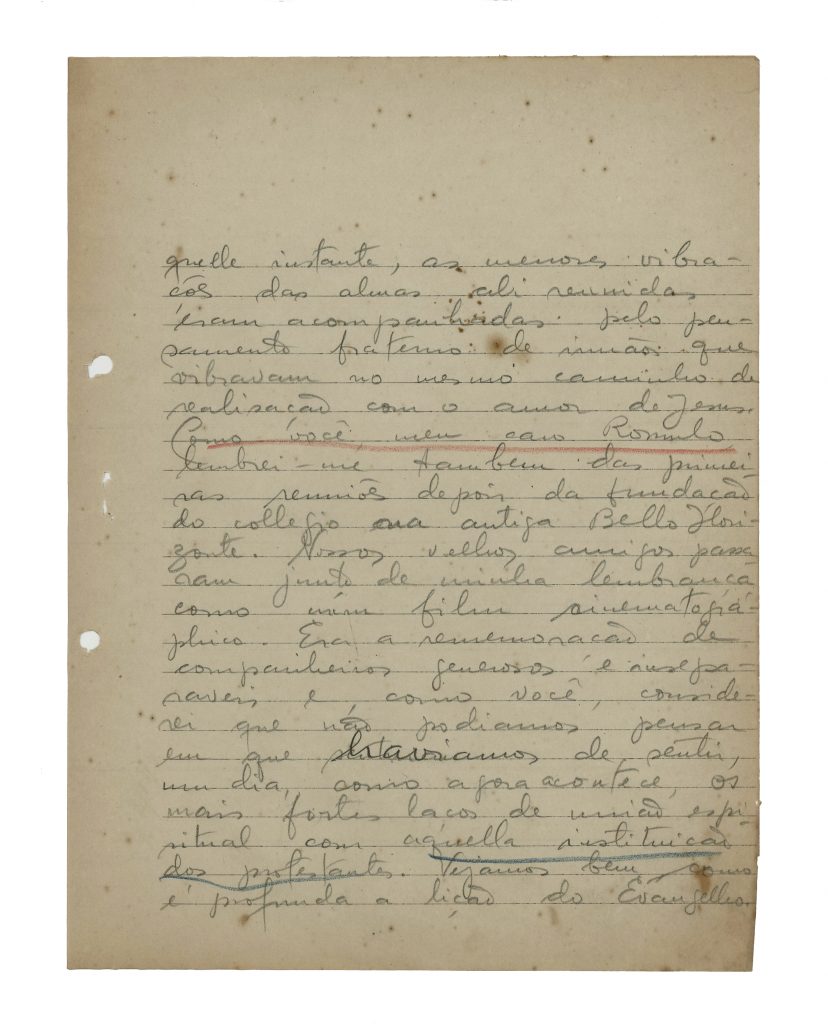 quelle instante, as menores vibra-
cões das almas ali reunidas
éram acompanhadas pelo pen-
samento fraterno de irmãos que
vibravam no mesmo caminho de
realisacão com o amor de Jesus.
Como você, meu caro Romulo,
lembrei-me tambem das primei-
ras reuniões depois da fundacão
do collegio na antiga Bello Hori-
zonte. Nossos velhos amigos passa
ram junto de minha lembranca
como num film sinematográ-
phico. Era a rememoracão de
companheiros generosos e insepa-
raveis e, como você, conside-
rei que não podiamos pensar
em que haviamos de sentir,
um dia, como agora acontece, os
mais fortes lacos de união espi-
ritual com aquella instituicão
dos protestantes. Vejamos bem, como
é profunda a licão do Evangelho.